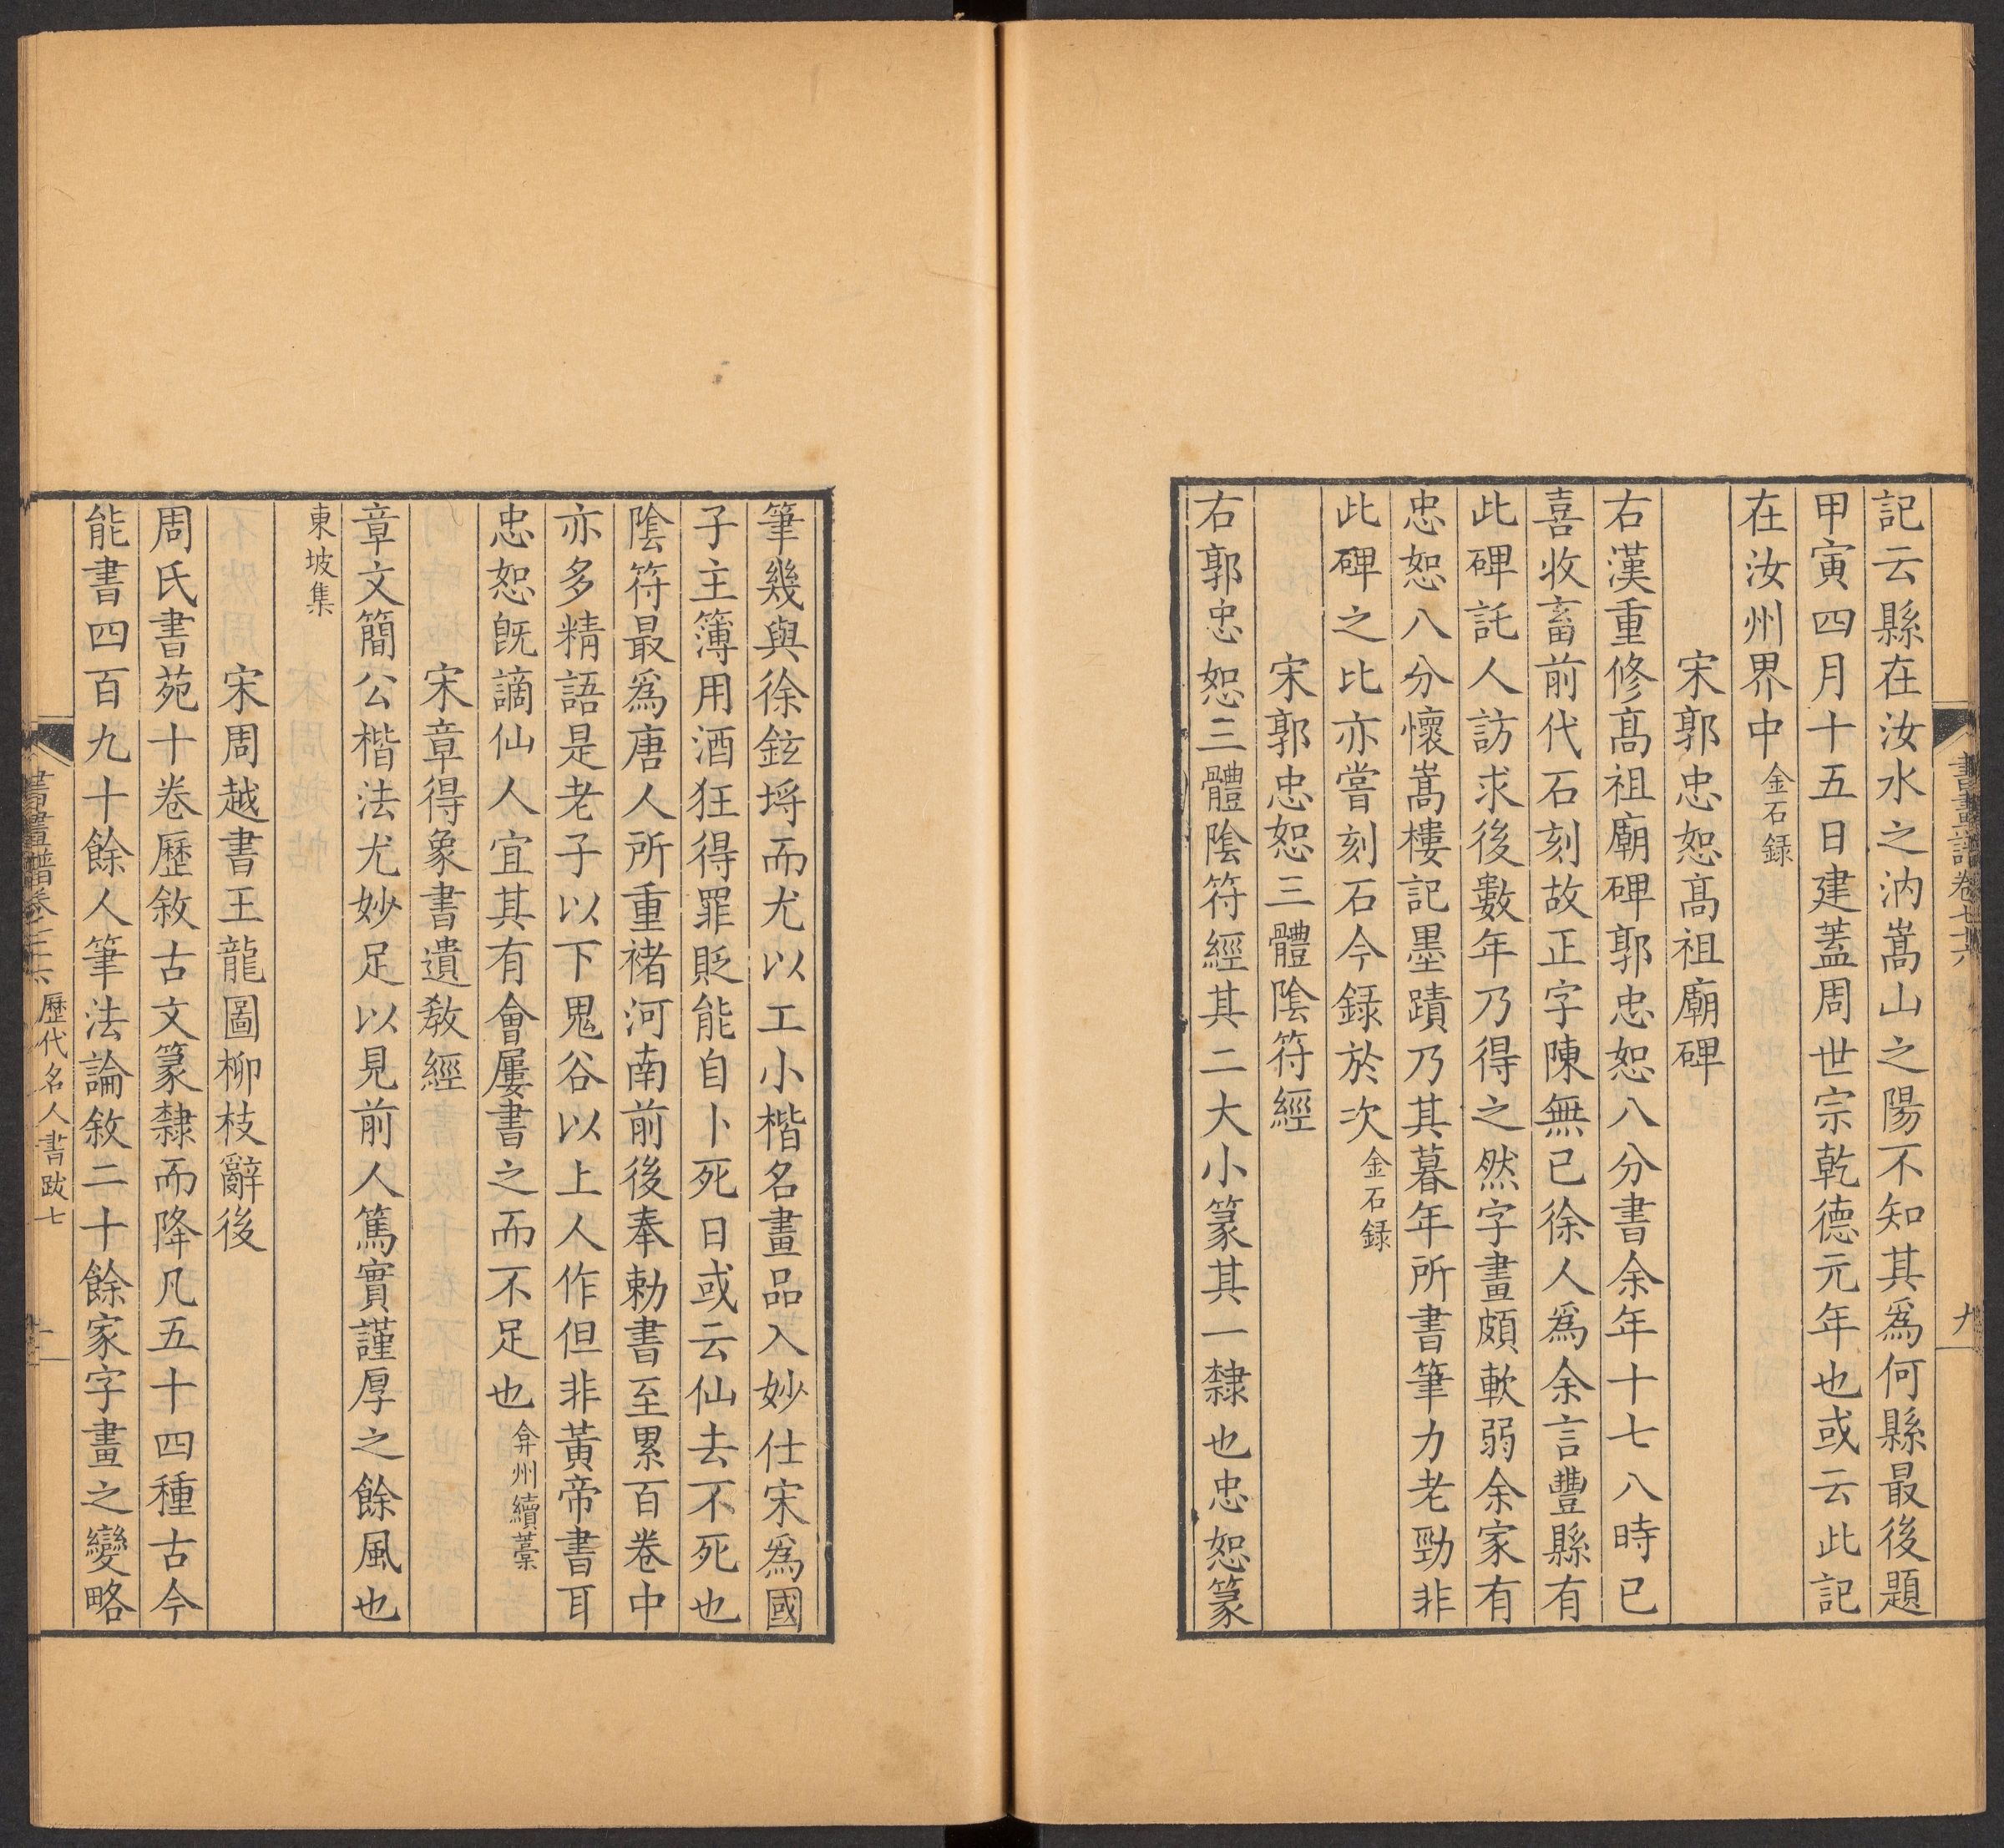 書畫譜卷七十六
九
記云縣在汝水之汭嵩山之陽不知其爲何縣最後題
甲寅四月十五日建蓋周世宗乾德元年也或云此記
在汝州界中金石録
宋郭忠恕髙祖廟碑
右漢重修髙祖廟碑郭忠恕八分書余年十七八時已
喜收畜前代石刻故正字陳無已徐人爲余言豐縣有
此碑託人訪求後數年乃得之然字畫頗軟弱余家有
忠恕八分懷嵩樓記墨蹟乃其暮年所書筆力老勁非
此碑之比亦嘗刻石今録於次金石録
宋郭忠恕三體陰符經
右郭忠恕三體陰符經其二大小篆其一隸也忠恕篆
筆幾與徐鉉埒而尤以工小楷名畫品入妙仕宋爲國
子主簿用酒狂得罪貶能自卜死日或云仙去不死也
陰符最爲唐人所重褚河南前後奉勅書至累百卷中
亦多精語是老子以下鬼谷以上人作但非黃帝書耳
忠恕旣謫仙人宜其有會屢書之而不足也弇州續藁
宋章得象書遺敎經
章文簡公楷法尤妙足以見前人篤實謹厚之餘風也
東坡集
宋周越書王龍圖柳枝辭後
周氏書苑十卷歷敘古文篆隸而降凡五十四種古今
能書四百九十餘人筆法論敘二十餘家字畫之變略
書畫譜卷七十六 歷代名人書跋七